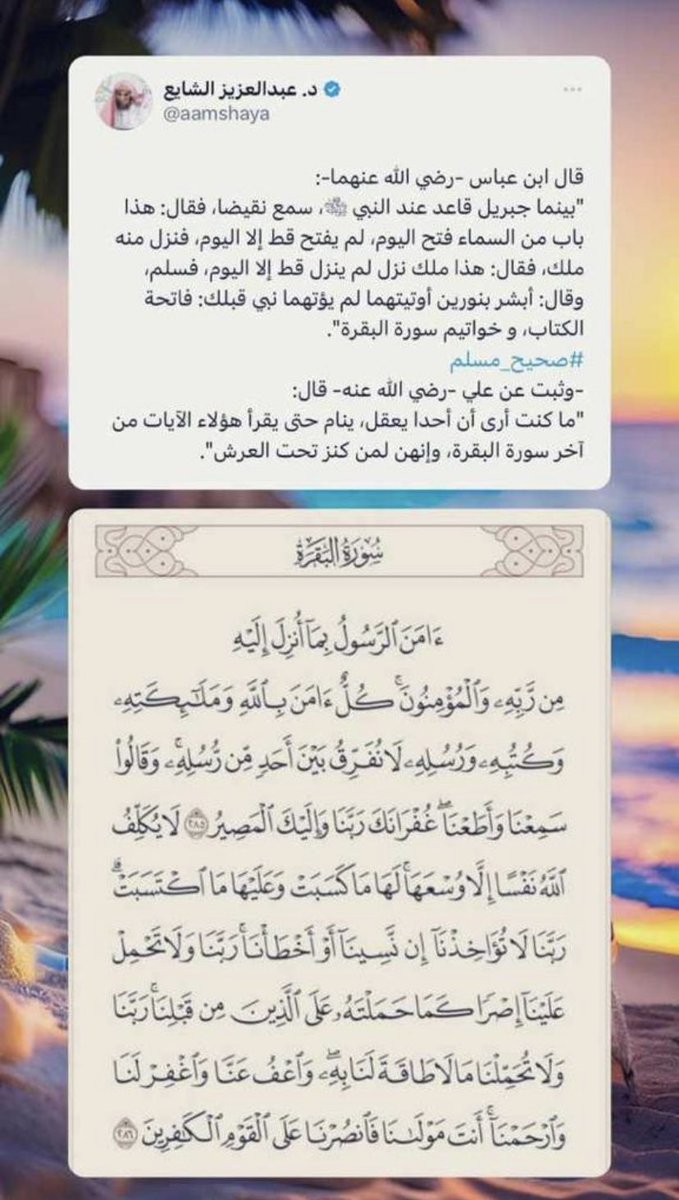 د. عبدالعزيز الشايع
@aamshaya
قال ابن عباس -رضي الله عنهما-:
"بينما جبريل قاعد عند النبي ﷺ، سمع نقيضا، فقال: هذا
باب من السماء فتح اليوم، لم يفتح قط إلا اليوم، فنزل منه
ملك، فقال: هذا ملك نزل لم ينزل قط إلا اليوم، فسلم،
وقال: أبشر بنورين أوتيتهما لم يؤتهما نبي قبلك: فاتحة
الكتاب، و خواتيم سورة البقرة".
#صحيح_مسلم
-وثبت عن علي -رضي الله عنه- قال:
"ما كنت أرى أن أحدا يعقل، ينام حتى يقرأ هؤلاء الآيات من
آخر سورة البقرة، وإنهن لمن كنز تحت العرش".
سُورَةُ البَقَرَةِ
ءَامَنَ ٱلرَّسُولُ بِمَآ أُنزِلَ إِلَيْهِ
مِن رَّبِّهِۦ وَٱلْمُؤْمِنُونَۚ كُلٌّ ءَامَنَ بِٱللَّهِ وَمَلَـٰٓئِكَتِهِۦ
وَكُتُبِهِۦ وَرُسُلِهِۦ لَا نُفَرِّقُ بَيْنَ أَحَدٍ مِّن رُّسُلِهِۦۚ وَقَالُوا۟
سَمِعْنَا وَأَطَعْنَاۖ غُفْرَانَكَ رَبَّنَا وَإِلَيْكَ ٱلْمَصِيرُ ٢٨٥ لَا يُكَلِّفُ
ٱللَّهُ نَفْسًا إِلَّا وُسْعَهَاۚ لَهَا مَا كَسَبَتْ وَعَلَيْهَا مَا ٱكْتَسَبَتْۗ
رَبَّنَا لَا تُؤَاخِذْنَآ إِن نَّسِينَآ أَوْ أَخْطَأْنَاۚ رَبَّنَا وَلَا تَحْمِلْ
عَلَيْنَآ إِصْرًا كَمَا حَمَلْتَهُۥ عَلَى ٱلَّذِينَ مِن قَبْلِنَاۚ رَبَّنَا
وَلَا تُحَمِّلْنَا مَا لَا طَاقَةَ لَنَا بِهِۦۖ وَٱعْفُ عَنَّا وَٱغْفِرْ لَنَا
وَٱرْحَمْنَآۚ أَنتَ مَوْلَىٰنَا فَٱنصُرْنَا عَلَى ٱلْقَوْمِ ٱلْكَـٰفِرِينَ ٢٨٦